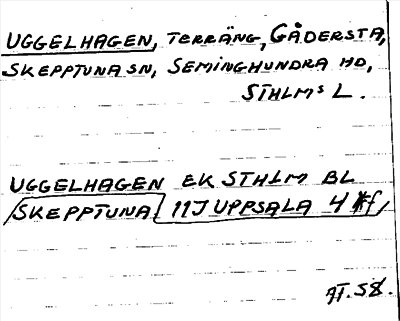 UGGELHAGEN, TERRÄNG, GÅDERSTA,
SKEPPTUNA SN, SEMINGHUNDRA HD,
STHLMS L.
UGGELHAGEN EK STHLM BL
SKEPPTUNA 11J UPPSALA 4
AT. 58.